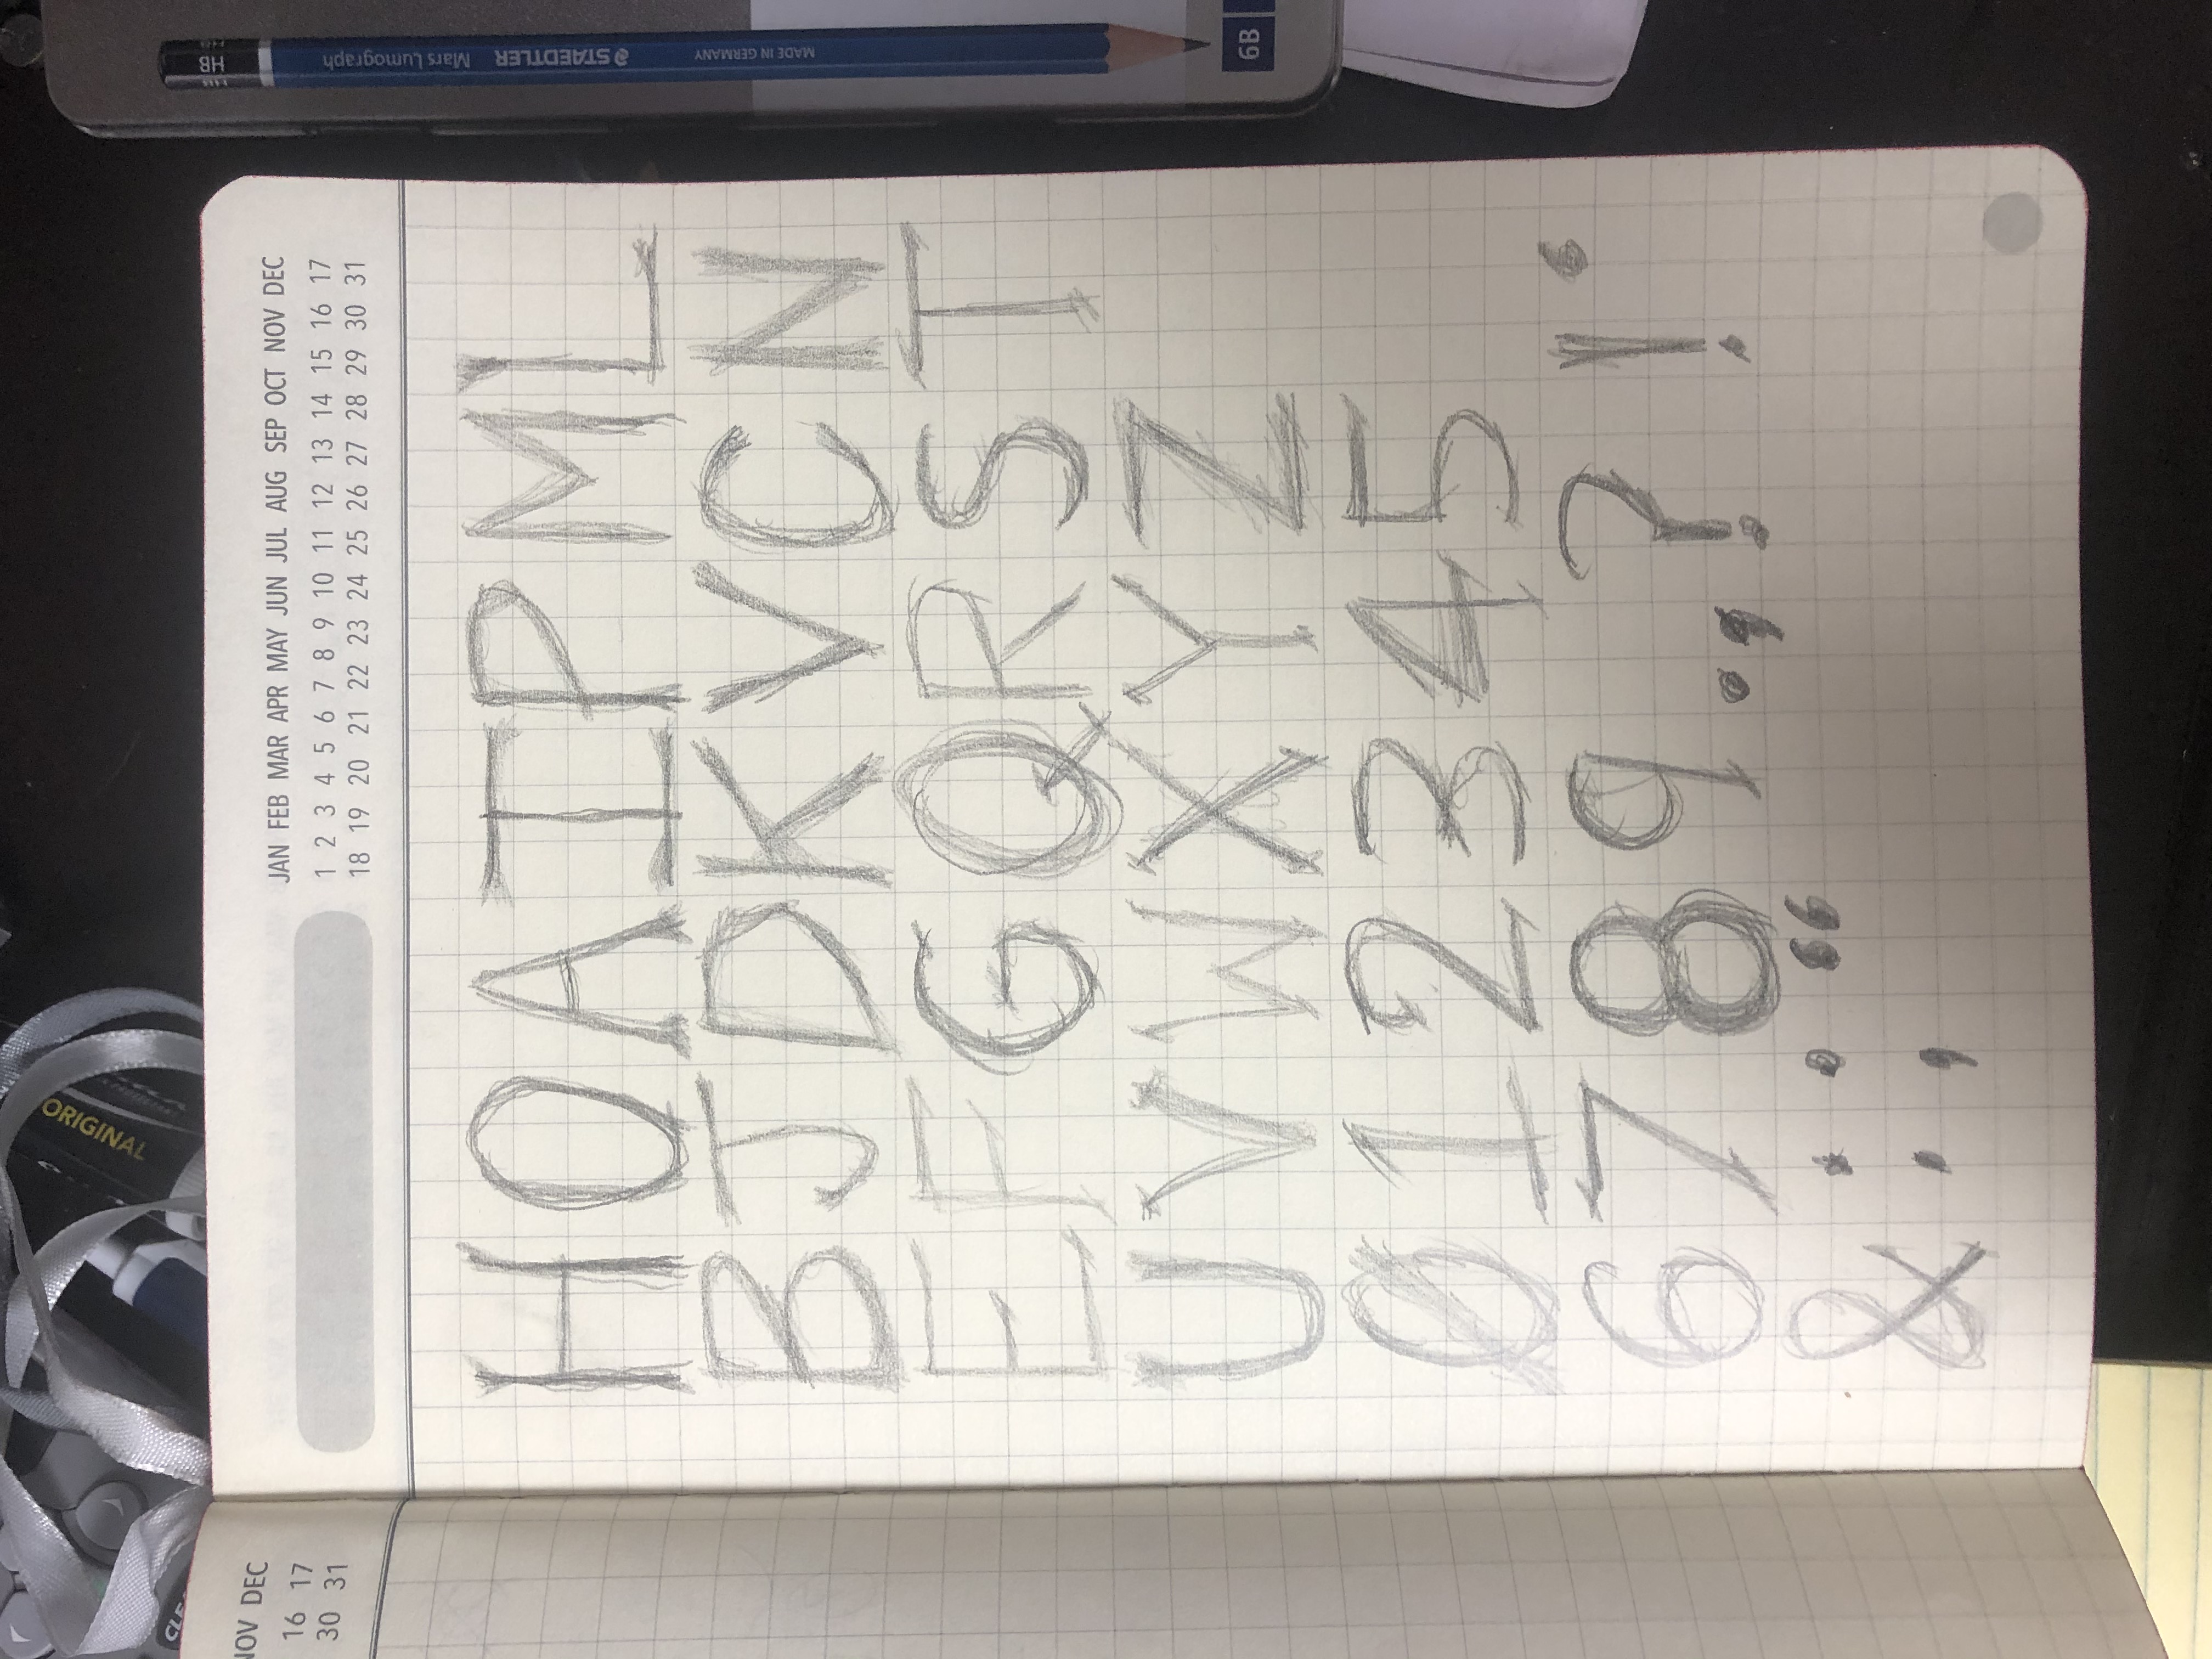 ORIGINAL
NOV DEC
16 17
30 31
JAN FEB MAR APR MAY JUN JUL AUG SEP OCT NOV DEC
1 2 3 4 5 6 7 8 9 10 11 12 13 14 15 16 17
18 19 20 21 22 23 24 25 26 27 28 29 30 31
H O A I P M L
B J D K V C N
E F G Q R S T
U V W X Y Z
0 1 2 3 4 5
6 7 8 9 . , ? ! ‘
& : ; “
MADE IN GERMANY STAEDTLER Mars Lumograph HB
6B